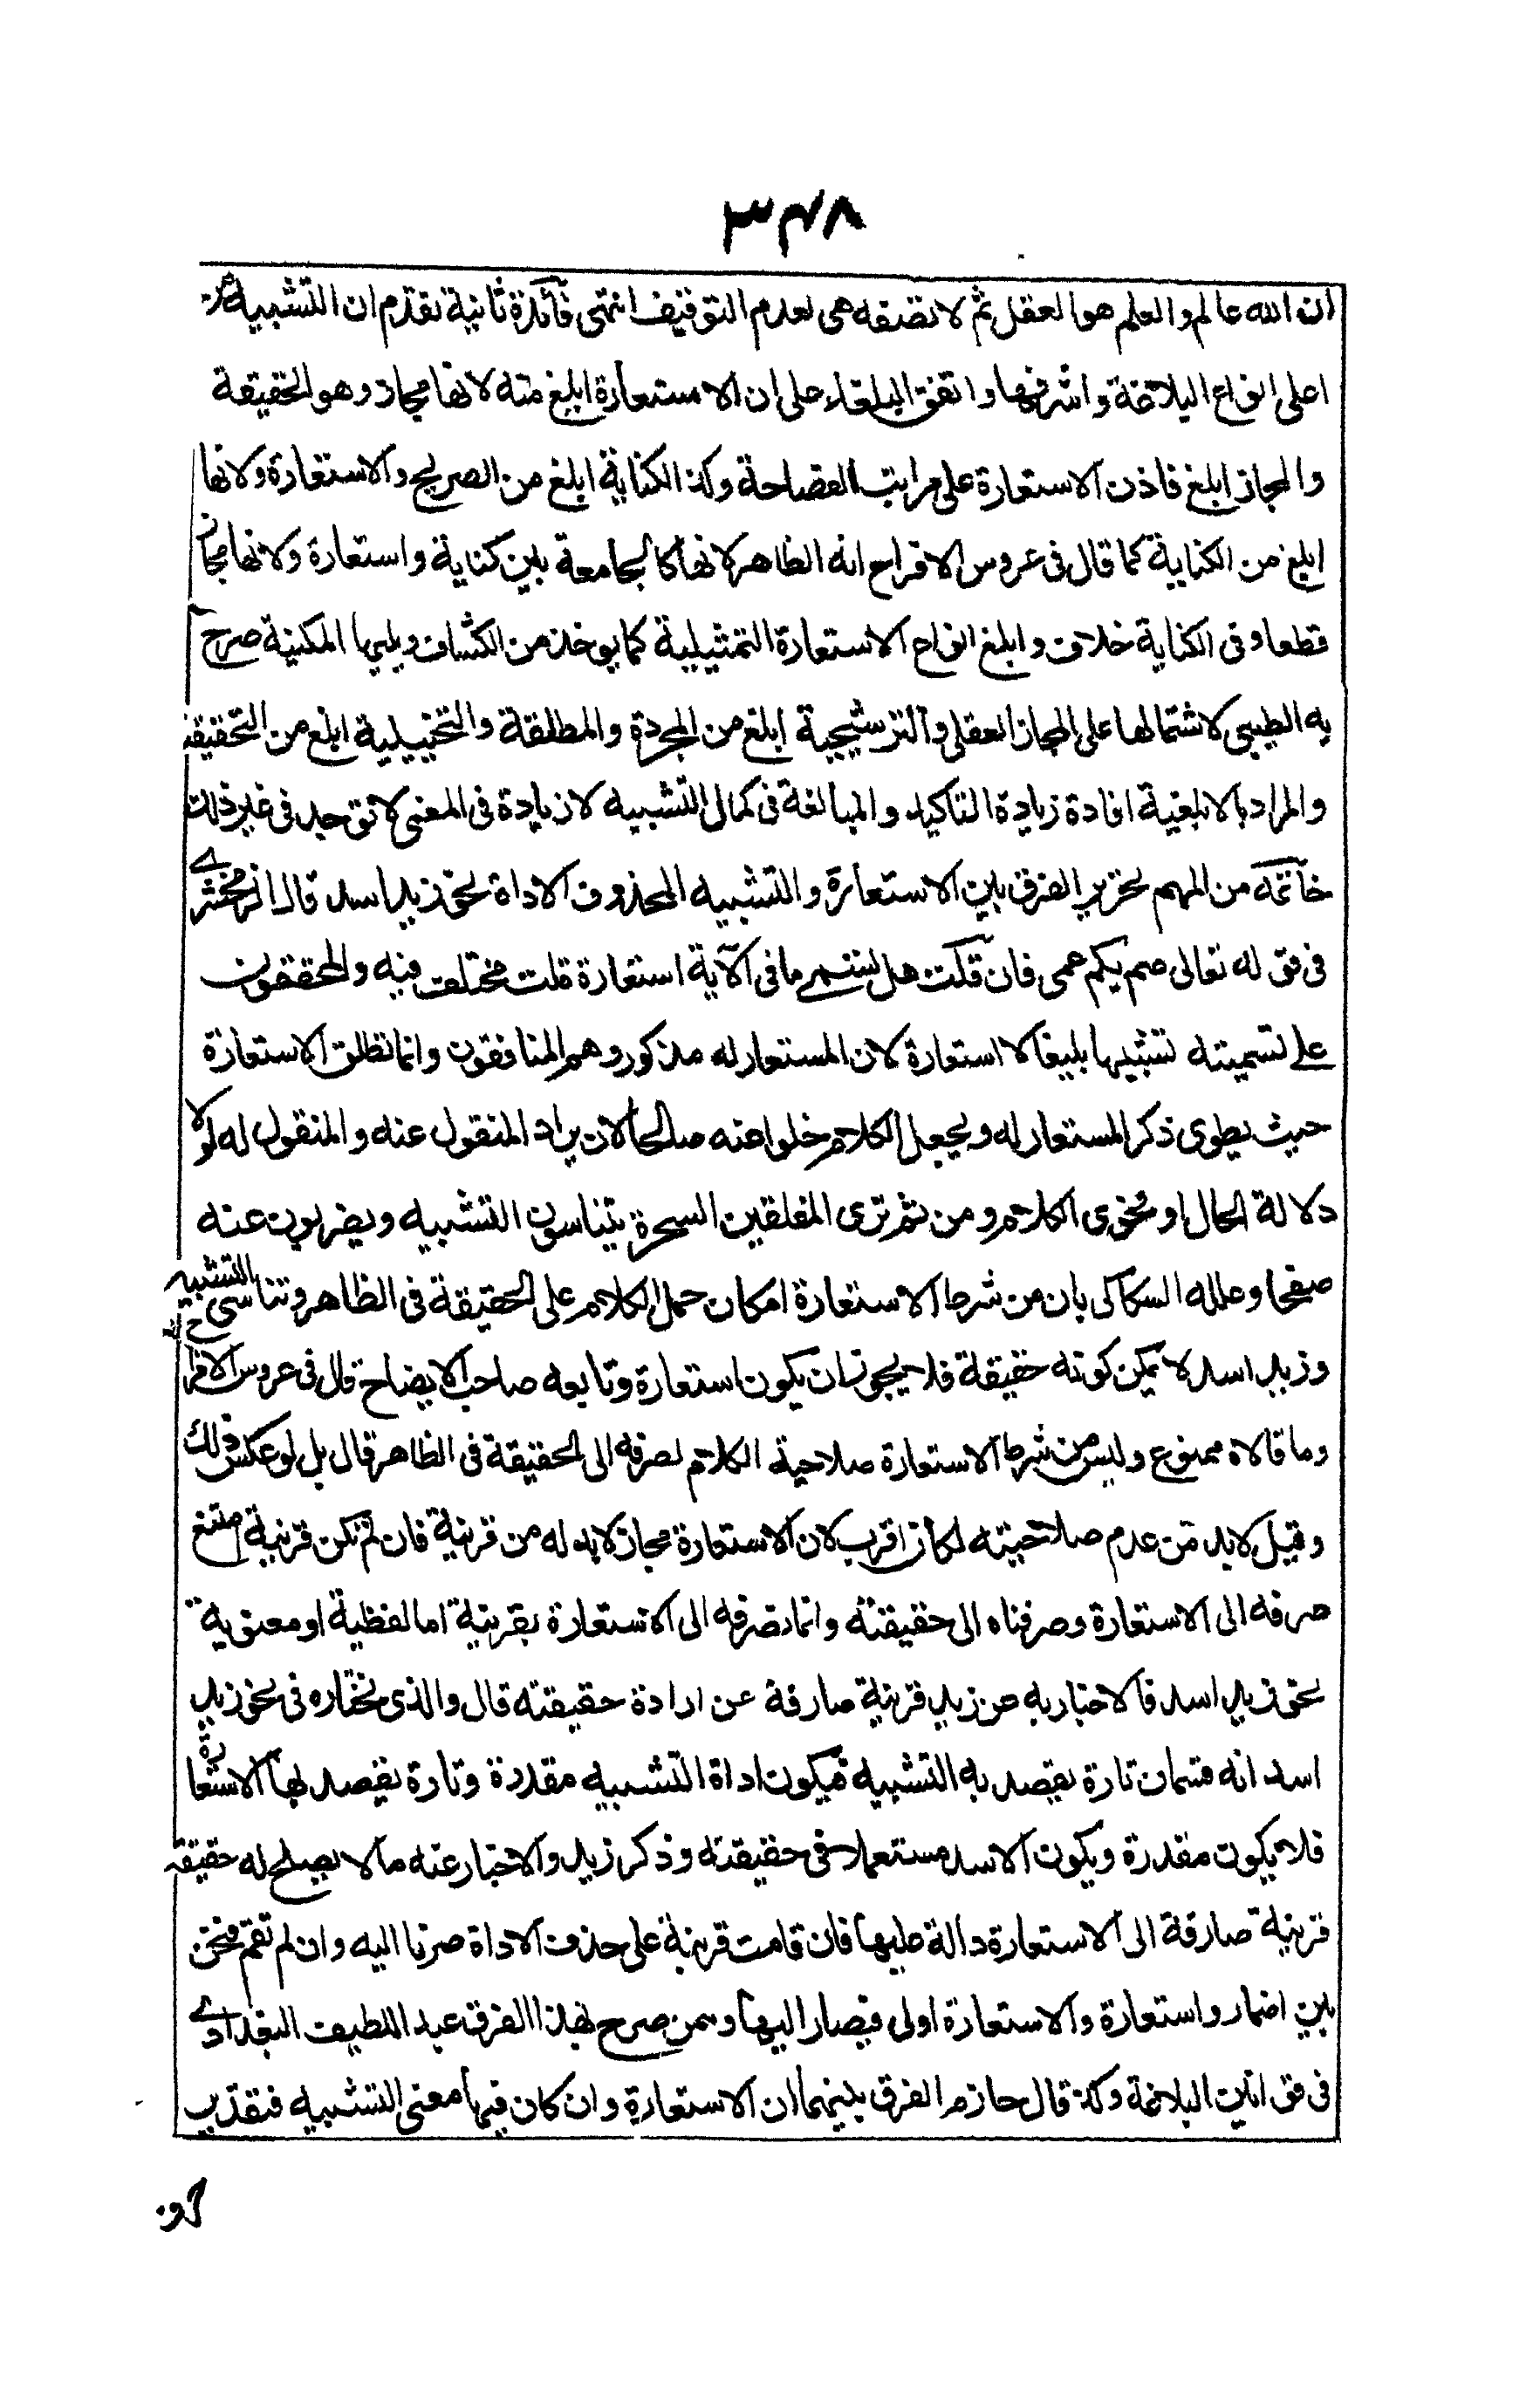 ٣٤٨
ان الله عالم والعلم هو العقل ثم لا نصفه هى لعدم التوقيف انتهى فائدة ثانية تقدم ان التشبيه من
اعلى انواع البلاغة واشرفها واتفق البلغاء على ان الاستعارة ابلغ منه لانها مجاز وهو الحقيقة
والمجاز ابلغ فاذن الاستعارة على مراتب الفصاحة وكذا الكناية ابلغ من الصريح والاستعارة ولانها
ابلغ من الكناية كما قال فى عروس الافراح انه الظاهر لانها كالجامعة بين كناية واستعارة ولانها مجاز
قطعا وفى الكناية خلاف وابلغ انواع الاستعارة التمثيلية كما يوخذ من الكشاف ويليها المكنية صرح
به الطيبى لاشتمالها على المجاز العقلى والترشيحية ابلغ من المجردة والمطلقة والتخييلية ابلغ من التحقيقية
والمراد بالابلغية افادة زيادة التاكيد والمبالغة فى كمال التشبيه لا زيادة فى المعنى لا توجد فى غير ذلك
خاتمة من المهم تحرير الفرق بين الاستعارة والتشبيه المحذوف الاداة نحو زيد اسد قال الزمخشرى
فى قوله تعالى صم بكم عمى فان قلت هل يسمى ما فى الآية استعارة قلت مختلف فيه والمحققون
على تسميته تشبيها بليغا لا استعارة لان المستعار له مذكور وهم المنافقون وانما تطلق الاستعارة
حيث يطوى ذكر المستعار له ويجعل الكلام خلوا عنه صالحا لان يراد المنقول عنه والمنقول له لولا
دلالة الحال او فحوى الكلام ومن ثم ترى المفلقين السحرة يتناسون التشبيه ويضربون عنه
صفحا وعلله السكاكى بان من شرط الاستعارة امكان حمل الكلام على الحقيقة فى الظاهر وتناسى التشبيه
وزيد اسد لا يمكن كونه حقيقة فلا يجوز ان يكون استعارة وتابعه صاحب الايضاح قال فى عروس الافراح
وما قالاه ممنوع وليس من شرط الاستعارة صلاحية الكلام لصرفه الى الحقيقة فى الظاهر قال بل لو عكس ذلك
وقيل لابد من عدم صلاحيته لكان اقرب لان الاستعارة مجاز لابد له من قرينة فان لم تكن قرينة امتنع
صرفه الى الاستعارة وصرفناه الى حقيقته وانما نصرفه الى الاستعارة بقرينة اما لفظية او معنوية
نحو زيد اسد فالاخبار به عن زيد قرينة صارفة عن ارادة حقيقته قال والذى نختاره فى نحو زيد
اسد انه قسمان تارة يقصد به التشبيه فيكون اداة التشبيه مقدرة وتارة يقصد بها الاستعارة
فلا يكون مقدرة ويكون الاسد مستعملا فى حقيقته وذكر زيد والاخبار عنه مالا يصلح له حقيقة
قرينة صارفة الى الاستعارة دالة عليها فان قامت قرينة على حذف الاداة صرنا اليه وان لم تقم فنحن
بين اضمار واستعارة والاستعارة اولى فيصار اليها وممن صرح بهذا الفرق عبد اللطيف البغدادى
فى قوانين البلاغة وكذا قال حازم الفرق بينهما ان الاستعارة وان كان فيها معنى التشبيه فتقدير